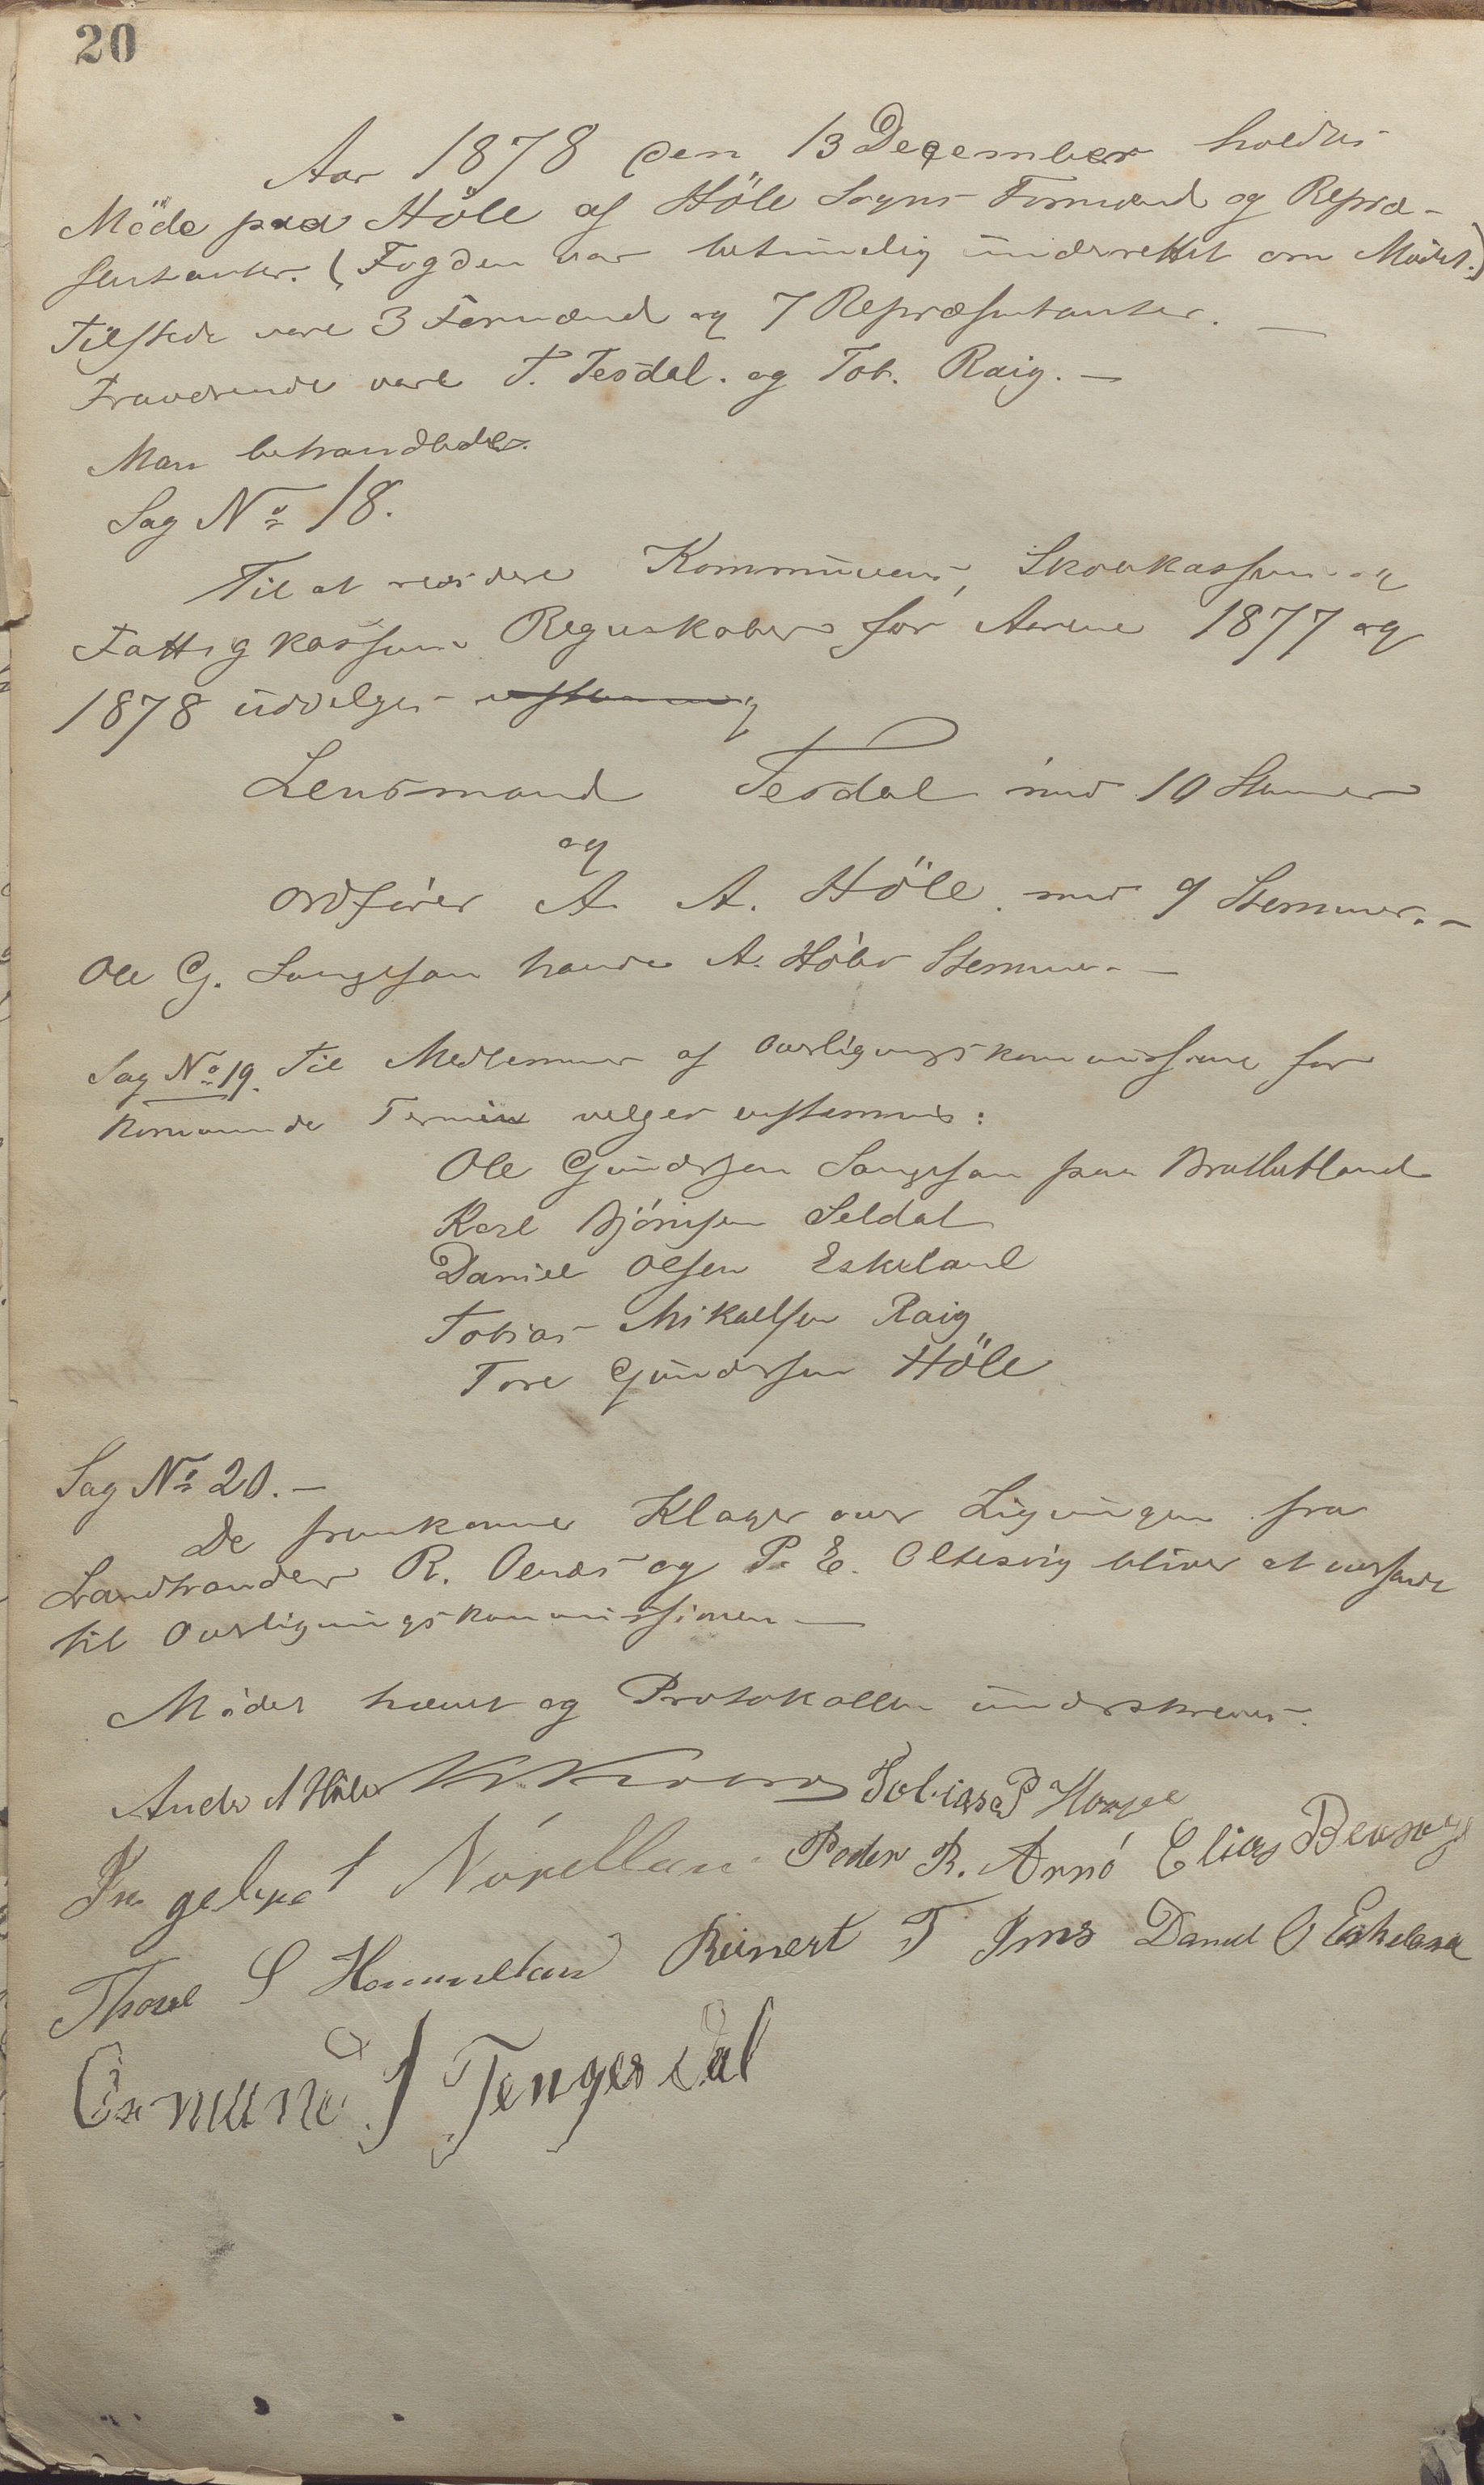 20
Aar 1878 den 13 December holdtes
Möde paa Höle af Höle Sogns Formænd og Repræ-
sentanter. (Fogden var betimelig underrettet om Mödet.)
Tilstede vare 3 Formænd og 7 Repræsentanter. —
Fraværende vare T. Tesdal. og Tob. Raig. —
Man behandlede:
Sag No 18.
Til at revidere Kommunens, Skolekassens og
Fattigkassens Regnskaber for Aarene 1877 og
1878 udvalges
Lensmand Tesdal med 10 Stemmer
og
Ordfører A. A. Höle med 9 Stemmer. —
Ole G. havde A. Höles Stemme. —
Sag No 19. Til Medlemmer af Overligningskommissione for
kommende Termin valges enstemmig:
Ole Gundersen paa Brattetland
Karl Bjørnsen Seldal
Daniel Olsen Eskeland
Tobias Mikaelsen Raig
Tore Gundersen Höle
Sag No 20. —
De fremkomne Klager over Ligningen fra
Landhandler R. Oenæs og P. E. Oltesvig bliver at oversende
til Overligningskommissionen —
Mødet hævet og Protokollen underskreves.
Anders A Höle Tobias P Hogge
Ingebret Norelland Peder R. Arnó Elias Bersag
Thore S Hommeland Reinert T Ims Daniel O Eskeland
Osmund J Tengesdal